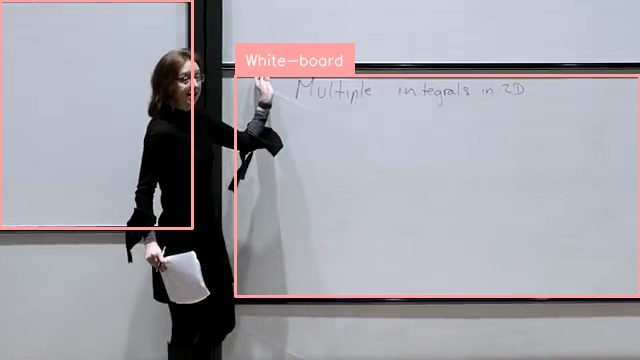 White-board
Multiple integrals in 2D